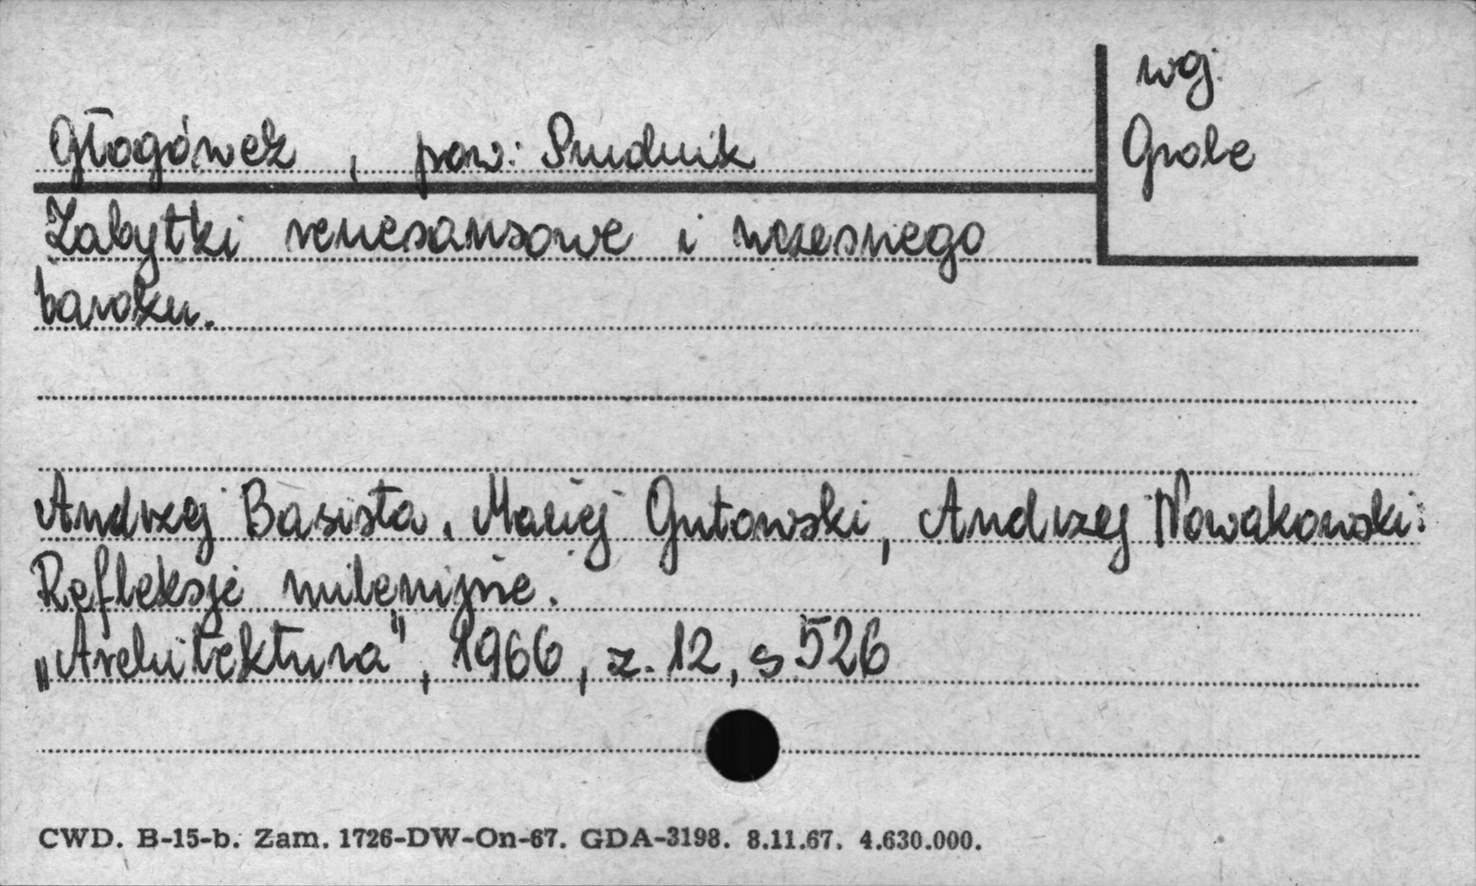 woj.
Opole
Głogówek, pow: Prudnik
Zabytki renesansowe i wczesnego
baroku.
Andrzej Basista, Maciej Gutowski, Andrzej Nowakowski:
Refleksje milenijne.
„Architektura", 1966, z. 12, s 526
CWD. B-15-b. Zam. 1726-DW-On-67. GDA-3198. 8.11.67. 4.630.000.